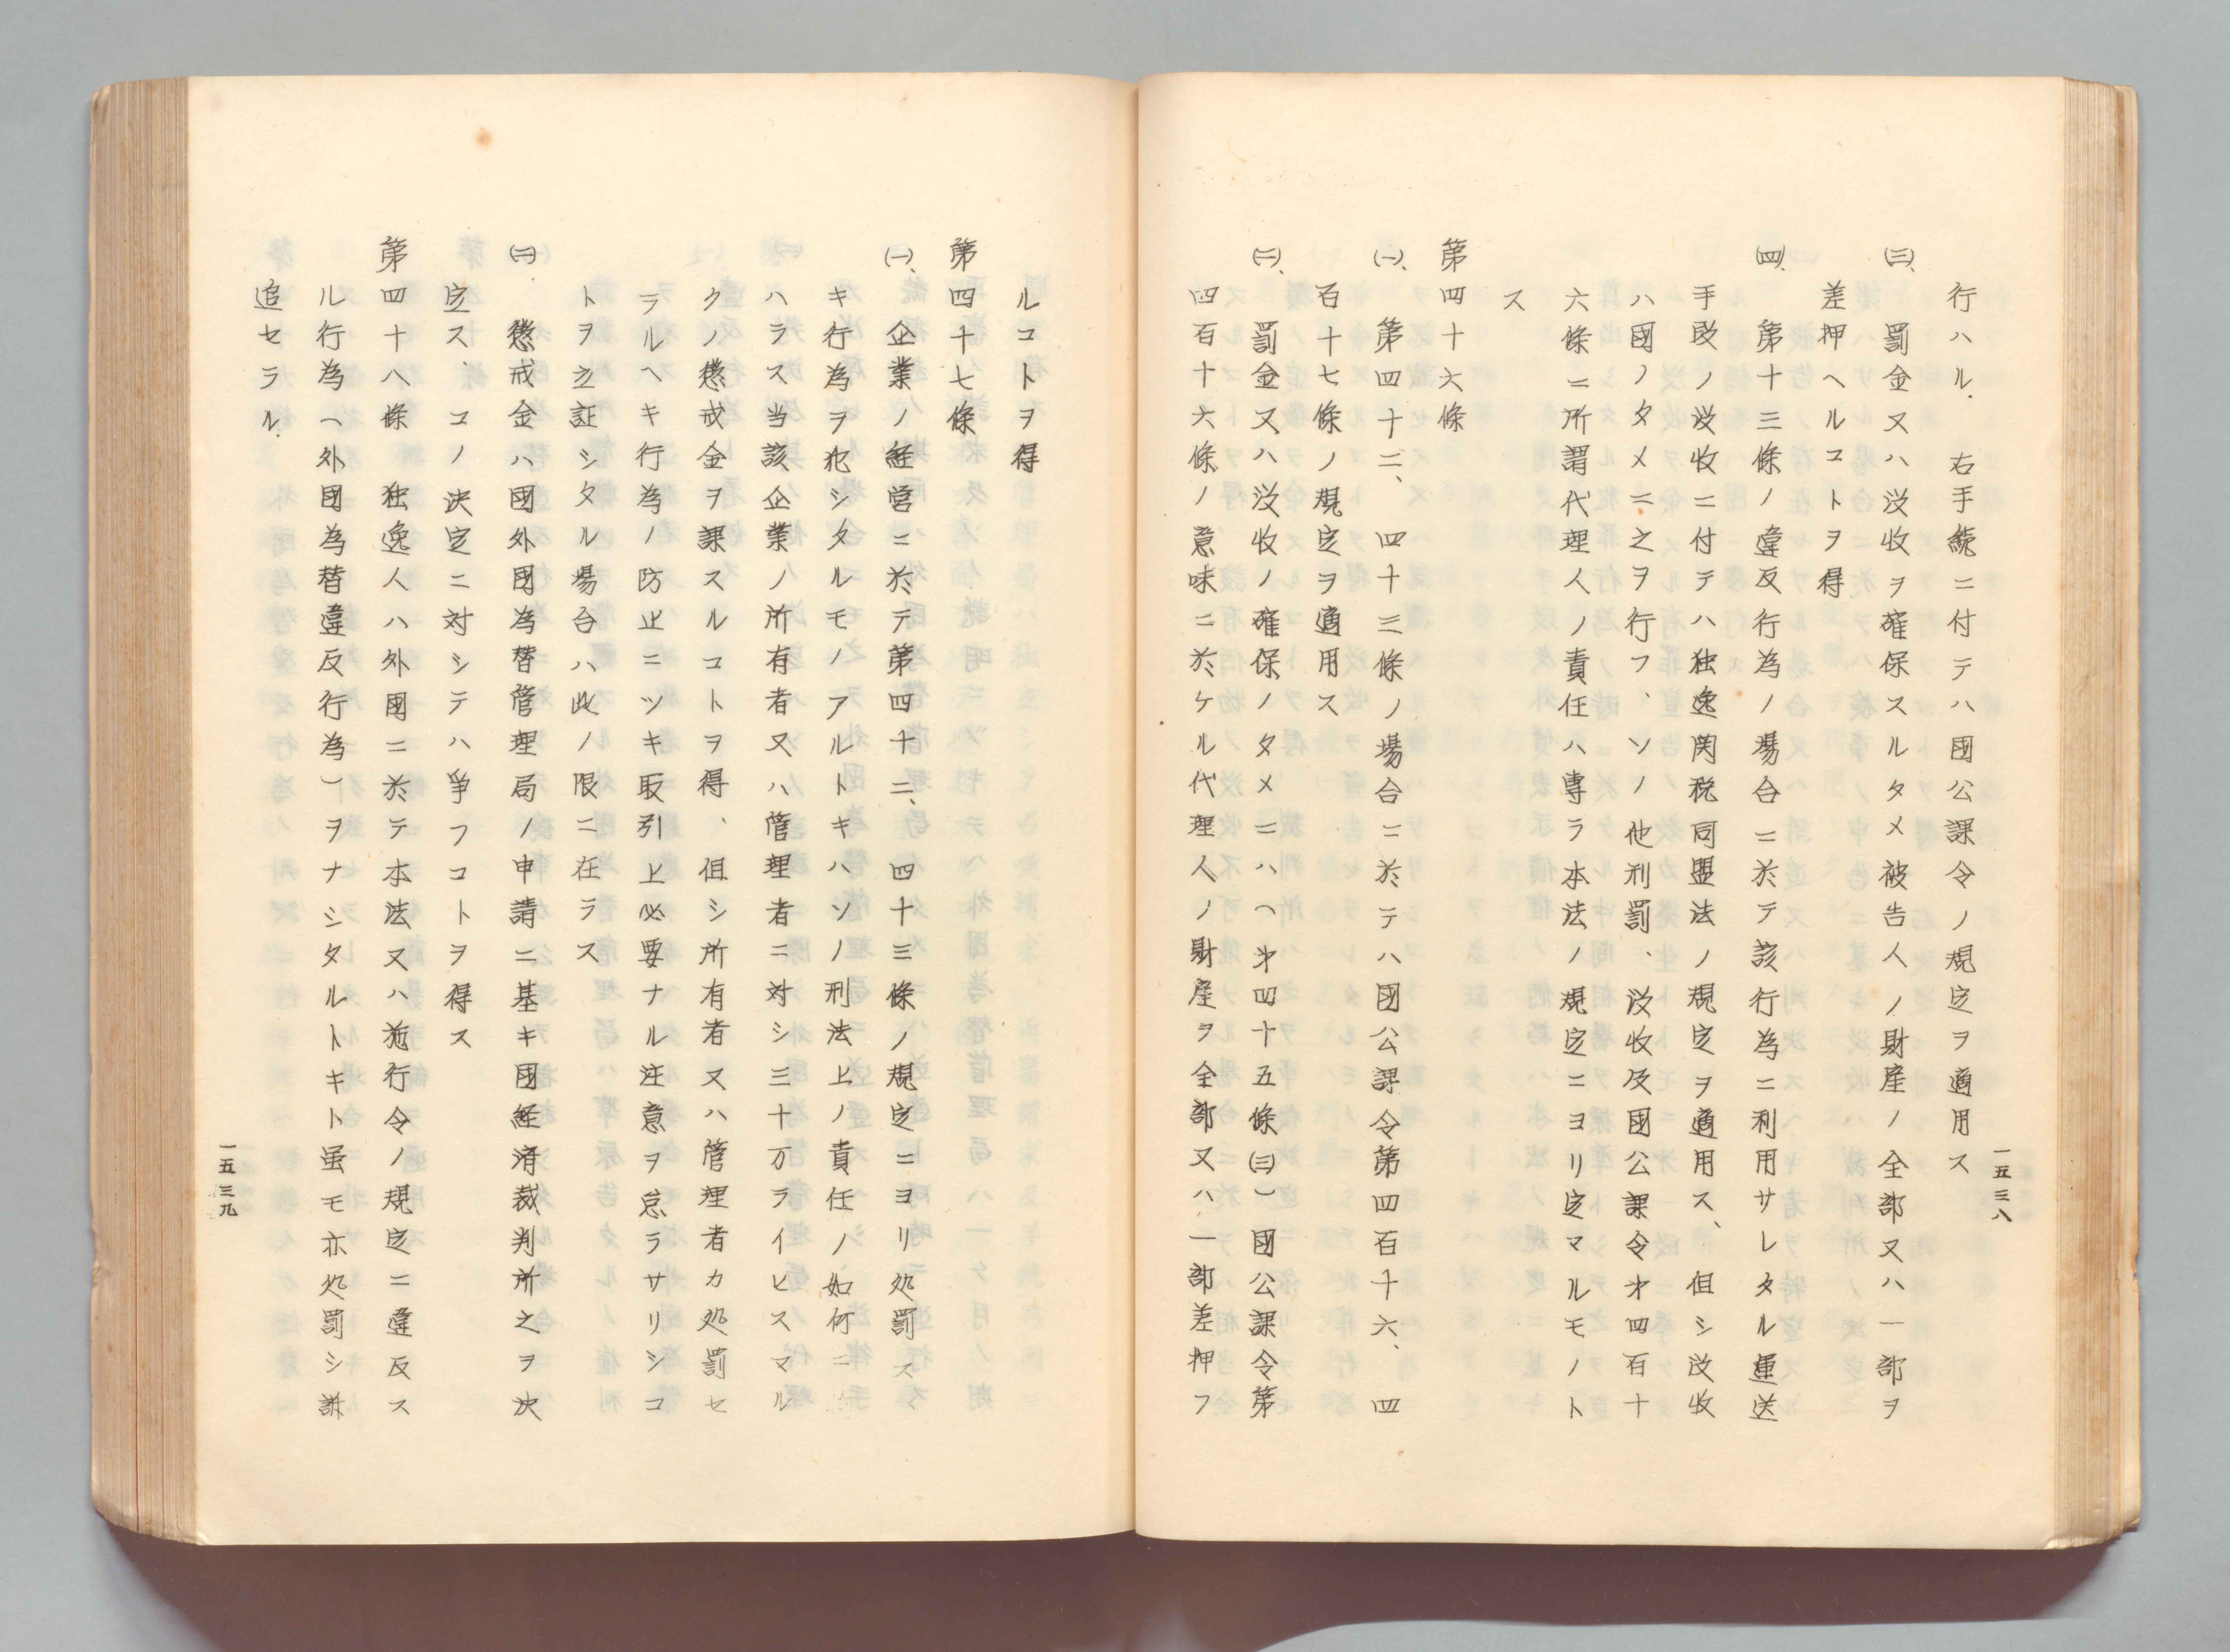 行ハル、右手続ニ付テハ國公課令ノ規定ヲ適用ス
㈢、罰金又ハ沒收ヲ確保スルタメ被告人ノ財産ノ全部又ハ一部ヲ
差押ヘルコトヲ得
㈣、第十三條ノ違反行為ノ場合ニ於テ該行為ニ利用サレタル運送
手段ノ沒收ニ付テハ独逸関税同盟法ノ規定ヲ適用ス、但シ沒收
ハ國ノタメニ之ヲ行フ、ソノ他刑罰、沒收及國公課令才四百十
六條ニ所謂代理人ノ責任ハ専ラ本法ノ規定ニヨリ定マルモノト
ス
第四十六條
㈠、第四十二、四十三條ノ場合ニ於テハ國公課令第四百十六、四
百十七條ノ規定ヲ適用ス
㈡、罰金又ハ沒收ノ確保ノタメニハ(才四十五條㈢)國公課令第
四百十六條ノ意味ニ於ケル代理人ノ財産ヲ全部又ハ一部差押フ
一五三八
ルコトヲ得
第四十七條
㈠、企業ノ経営ニ於テ第四十二、四十三條ノ規定ニヨリ処罰ス
キ行為ヲ犯シタルモノアルトキハソノ刑法上ノ責任ノ如何ニ
ハラス当該企業ノ所有者又ハ管理者ニ対シ三十万ライヒスマル
クノ懲戒金ヲ課スルコトヲ得、但シ所有者又ハ管理者カ処罰セ
ラルヘキ行為ノ防止ニツキ取引上必要ナル注意ヲ怠ラサリシコ
トヲ立証シタル場合ハ此ノ限ニ在ラス
㈡、懲戒金ハ國外國為替管理局ノ申請ニ基キ国経済裁判所之ヲ決
定ス、コノ決定ニ対シテハ争フコトヲ得ス
第四十八條 独逸人ハ外國ニ於テ本法又ハ施行令ノ規定ニ違反ス
ル行為(外國為替違反行為)ヲナシタルトキト虽モ亦処罰シ訴
追セラル、
一五三九